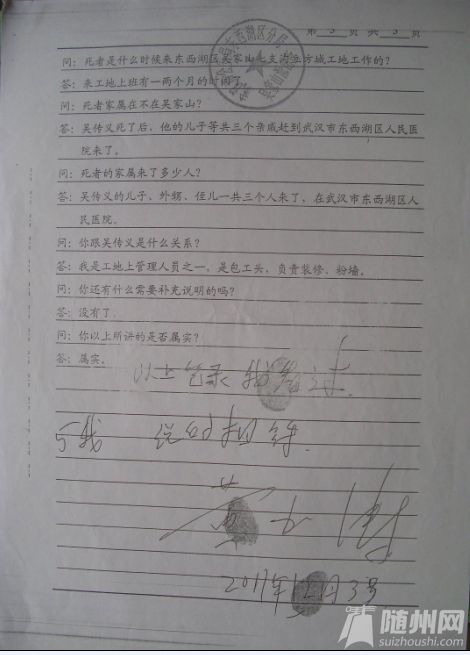 第 3 页 共 3 页
问：死者是什么时候来东西湖区吴家山七支沟五方城工地工作的？
答：来工地上班有一两个月的时间了。
问：死者家属在不在吴家山？
答：吴传义死了后，他的儿子等共三个亲戚赶到武汉市东西湖区人民医
院来了。
问：死者的家属来了多少人？
答：吴传义的儿子、外甥、侄儿一共三个人来了，在武汉市东西湖区人
民医院。
问：你跟吴传义是什么关系？
答：我是工地上管理人员之一，是包工头，负责装修、粉墙。
问：你还有什么需要补充说明的吗？
答：没有了
问：你以上所讲的是否属实？
答：属实。
以上笔录我看过
与我说的相符.
2011年12月3号
随州网
suizhoushi.com